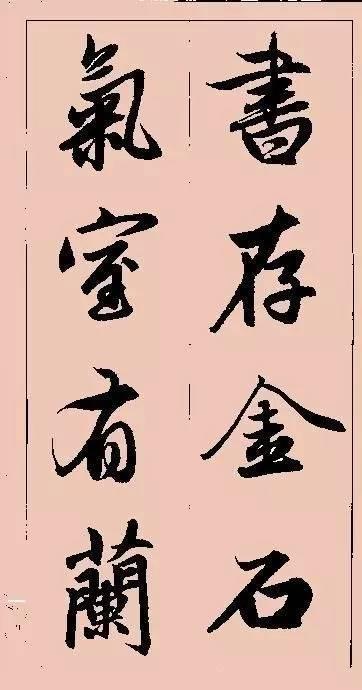 書存金石
氣室有蘭